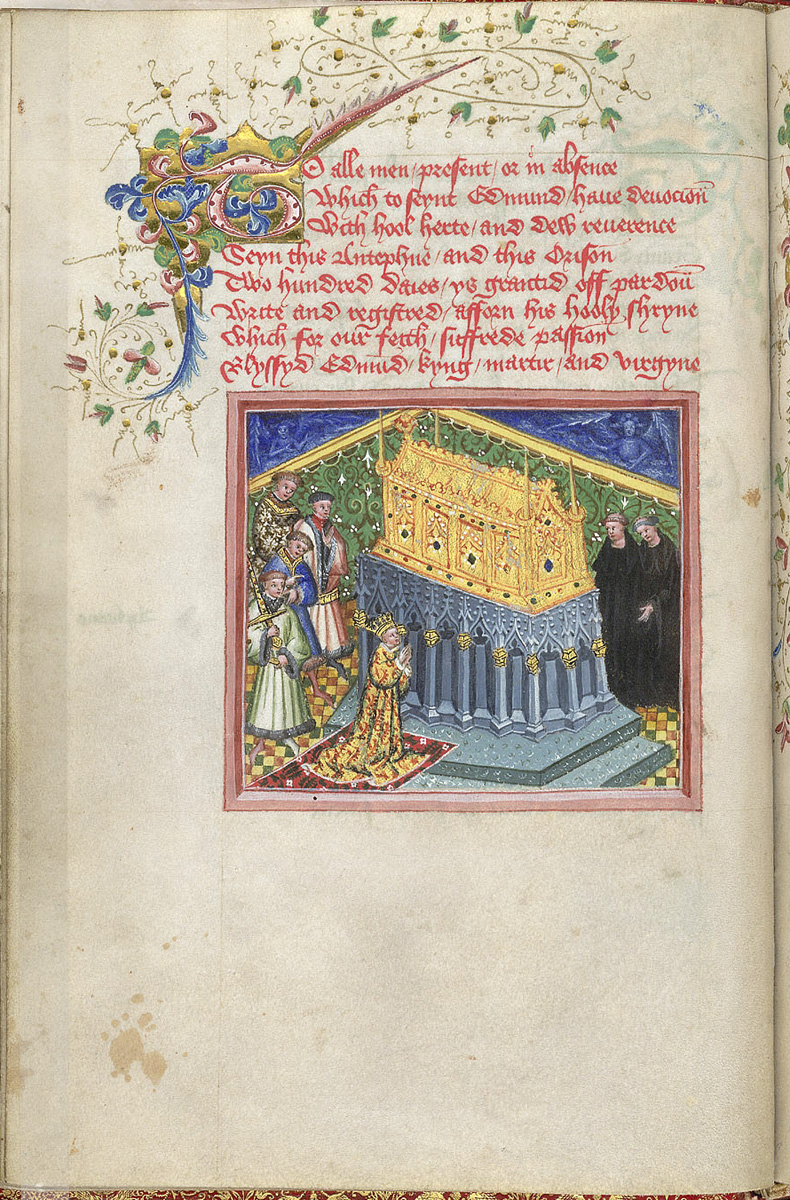 To alle men / present / or in absence
Which to seynt Edmund / haue devocioun
With hool herte / and dew reuerence
Seyn this Antephne / and this Orison
Two hundred daies / ys grantid off pardoun
Write and registred / afforn his hooly shryne
Which for our feith / suffrede passion
Blyssyd Edmund / kyng / martir / and virgyne